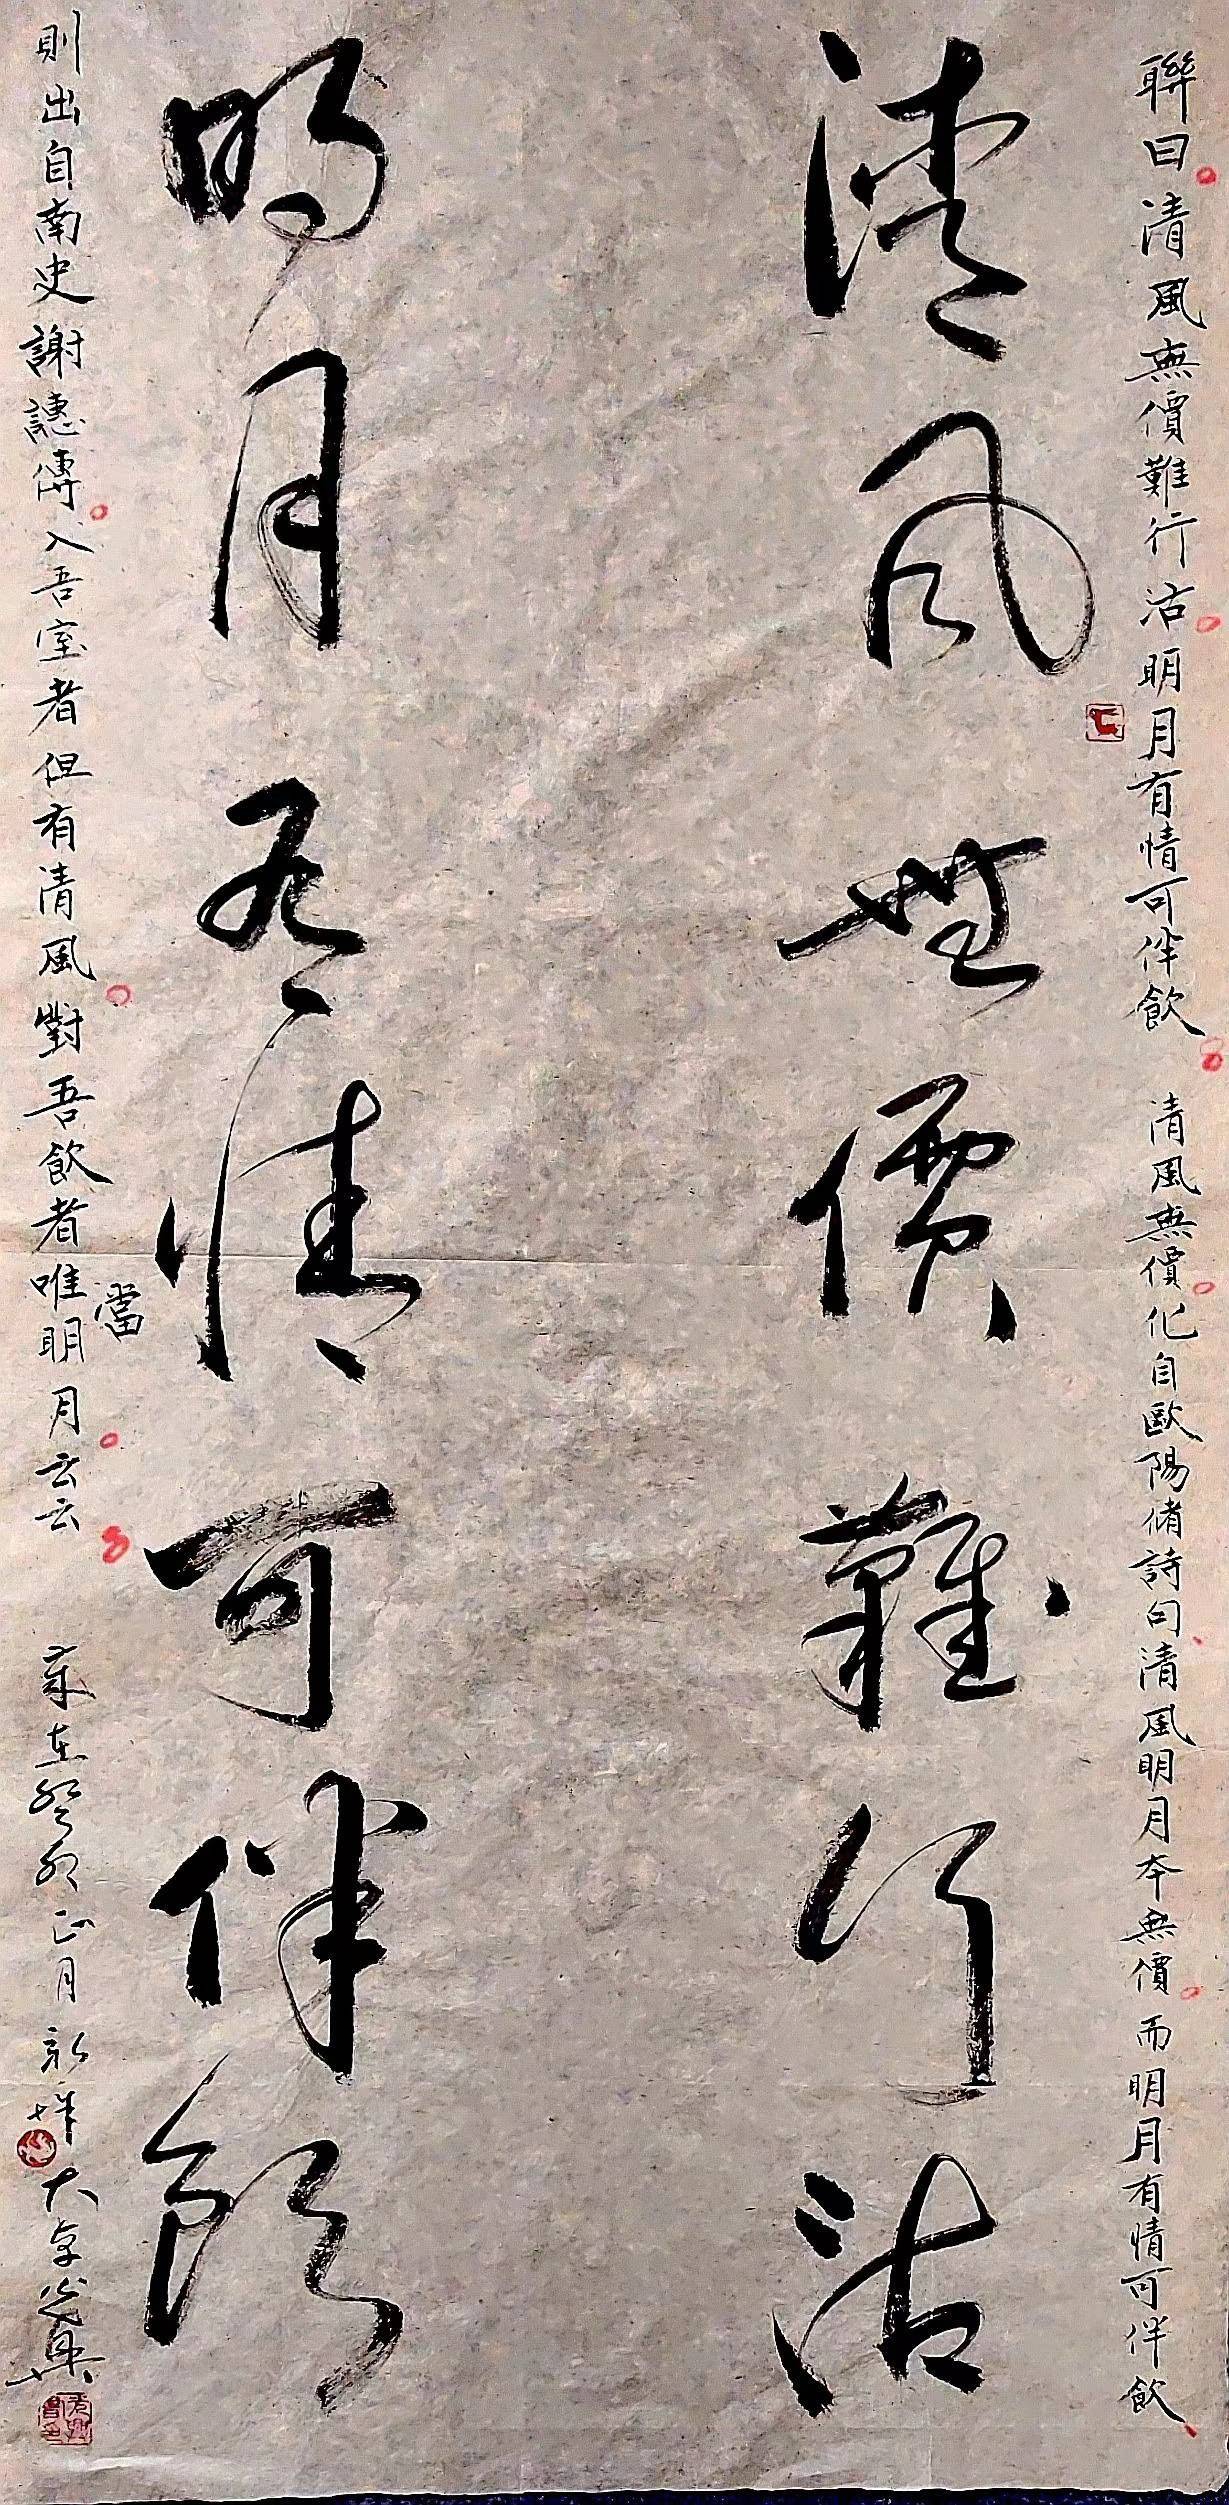 聯曰清風無價難行沽明月有情可伴飲 清風無價化自歐陽脩詩句清風明月本無價而明月有情可伴飲
清風無價難行沽
明月有情可伴飲
則出自南史謝譓傳入吾室者但有清風對吾飲者唯明月云云 歲在癸卯正月
當